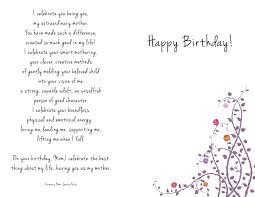 I celebrate you being you,
my extraordinary mother.
You have made such a difference,
created so much good in my life!
I celebrate your smart mothering,
your clever, creative methods
of gently molding your beloved child
into your vision of me:
a strong, capable adult, an unselfish
person of good character.
I celebrate your boundless,
physical and emotional energy
loving me, leading me, supporting me,
lifting me when I fall.
On your birthday, Mom, I celebrate the best
thing about my life...having you as my mother.
Happy Birthday!